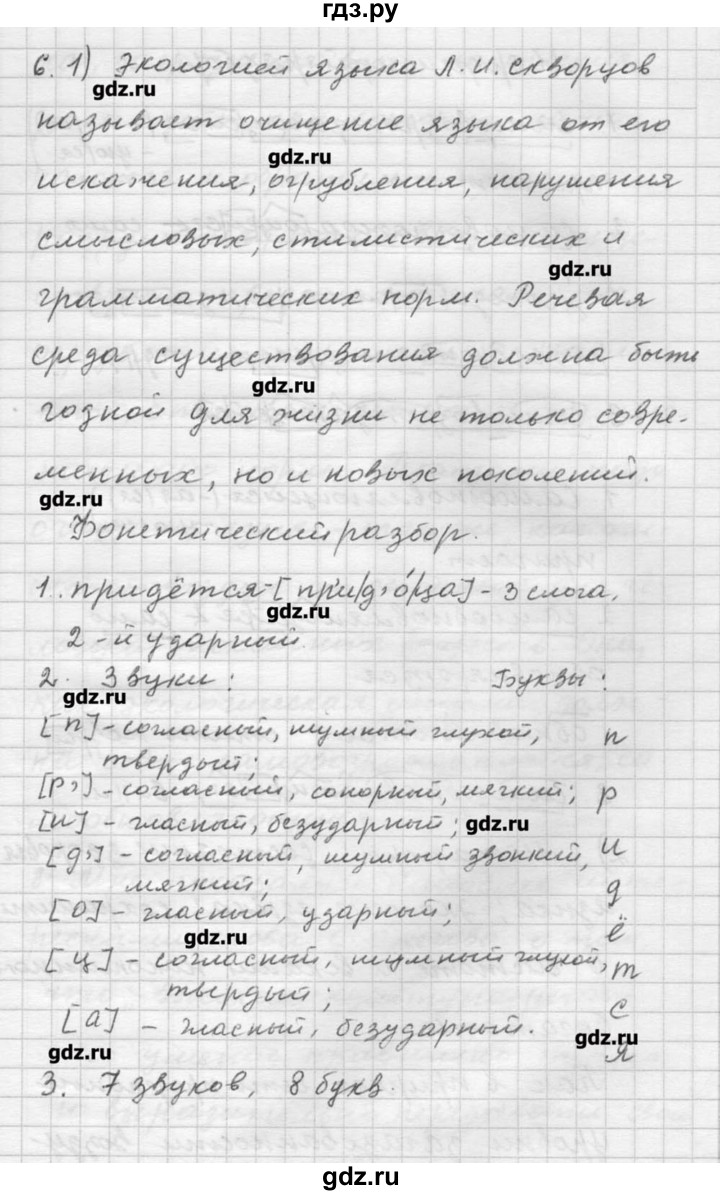 гдз.ру
6. 1) Экологией языка Л. И. Скворцов
gdz.ru
называет очищение языка от его
gdz.ru
искажения, огрубления, нарушения
смысловых, стилистических и
gdz.ru
грамматических норм. Речевая
среда существования должна быть
gdz.ru
годной для жизни не только совре-
менных, но и новых поколений.
gdz.ru
Фонетический разбор.
1. придётся - [пр'и/д'о́/ца] - 3 слога,
gdz.ru
2-й ударный.
2. Звуки: Буквы:
gdz.ru
[п] - согласный, шумный глухой, п
твердый;
[р'] - согласный, сонорный, мягкий; р
[и] - гласный, безударный; и
gdz.ru
[д'] - согласный, шумный звонкий,
мягкий; д
[о] - гласный, ударный; ё
gdz.ru
[ц] - согласный, шумный глухой, т
твердый; с
[а] - гласный, безударный. я
gdz.ru
gdz.ru
3. 7 звуков, 8 букв.
gdz.ru